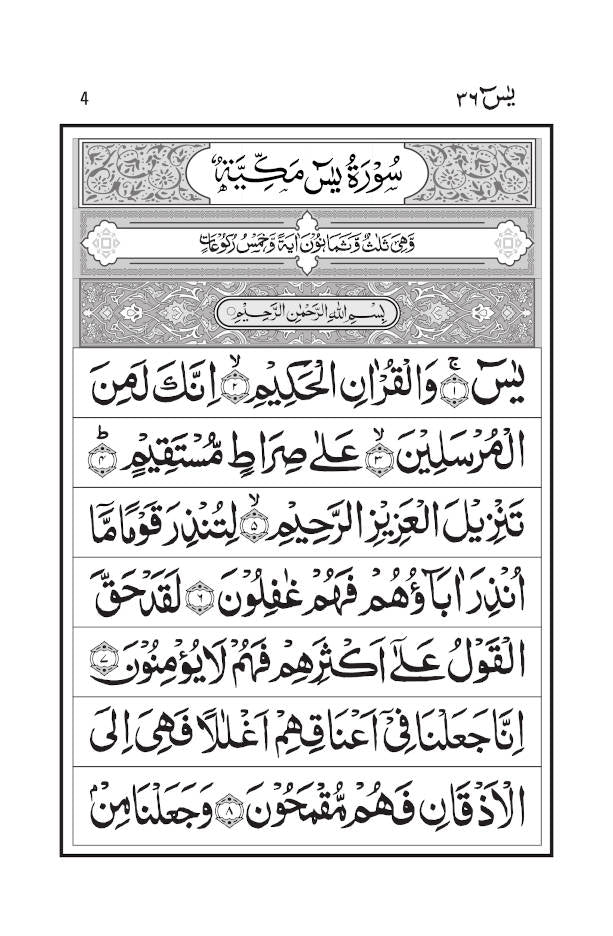 4
یٰسٓ ۳۶
سُوْرَةُ یٰسٓ مَكِّیَّةٌ
وَهِیَ ثَلٰثٌ وَّثَمَانُوْنَ اٰیَةً وَّخَمْسُ رُكُوْعَاتٍ
بِسْمِ اللّٰهِ الرَّحْمٰنِ الرَّحِیْمِ
یٰسٓ ۚ﴿۱﴾ وَالْقُرْاٰنِ الْحَكِیْمِ ۙ﴿۲﴾ اِنَّكَ لَمِنَ
الْمُرْسَلِیْنَ ۙ﴿۳﴾ عَلٰی صِرَاطٍ مُّسْتَقِیْمٍ ؕ﴿۴﴾
تَنْزِیْلَ الْعَزِیْزِ الرَّحِیْمِ ۙ﴿۵﴾ لِتُنْذِرَ قَوْمًا مَّاۤ
اُنْذِرَ اٰبَآؤُهُمْ فَهُمْ غٰفِلُوْنَ ﴿۶﴾ لَقَدْ حَقَّ
الْقَوْلُ عَلٰۤی اَكْثَرِهِمْ فَهُمْ لَا یُؤْمِنُوْنَ ﴿۷﴾
اِنَّا جَعَلْنَا فِیْۤ اَعْنَاقِهِمْ اَغْلٰلًا فَهِیَ اِلَی
الْاَذْقَانِ فَهُمْ مُّقْمَحُوْنَ ﴿۸﴾ وَجَعَلْنَا مِنْۢ